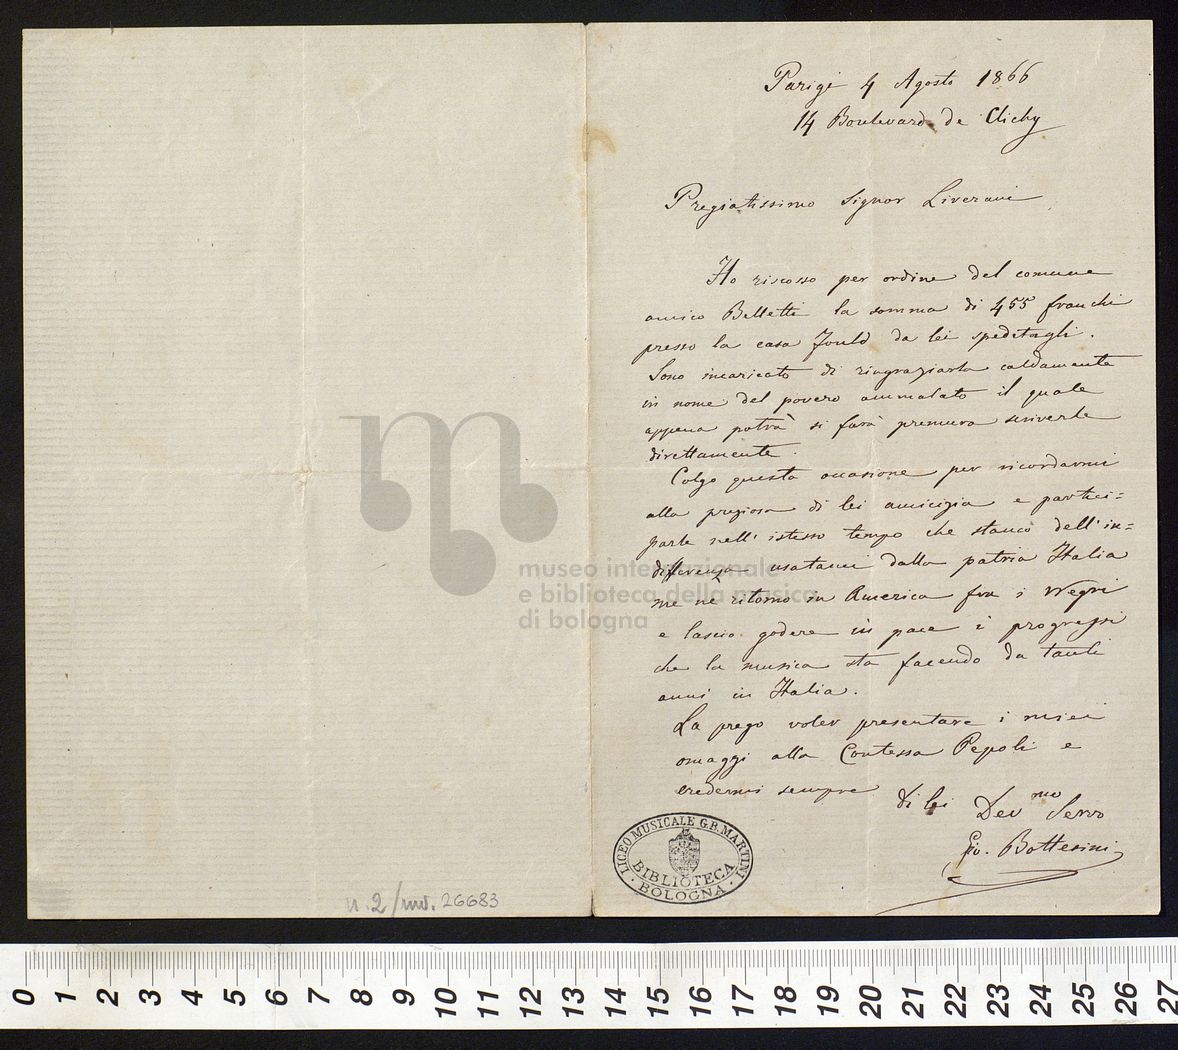 Parigi 4 Agosto 1866
14 Boulevard de Clichy
Pregiatissimo Signor Liverani
Ho riscosso per ordine del comune
amico Belletti la somma di 455 franchi
presso la casa Fould da lei speditagli.
Sono incaricato di ringraziarla caldamente
in nome del povero ammalato il quale
appena potrà si farà premura scriverle
direttamente.
Colgo questa occasione per ricordarmi
alla preziosa di lei amicizia e parteci=
parle nell' istesso tempo che stanco dell' in=
differenza usatami dalla patria Italia
me nè ritorno in America fra i Negri
e lascio godere in pace i progressi
che la musica sta facendo da tanti
anni in Italia.
La prego voler presentare i miei
omaggi alla Contessa Pepoli e
credermi sempre
di lei Dev.mo Servo
Gio. Bottesini
LICEO MUSICALE G.B. MARTINI
BIBLIOTECA
BOLOGNA
n. 2/inv. 26683
museo internazionale
e biblioteca della musica
di bologna
0 1 2 3 4 5 6 7 8 9 10 11 12 13 14 15 16 17 18 19 20 21 22 23 24 25 26 27